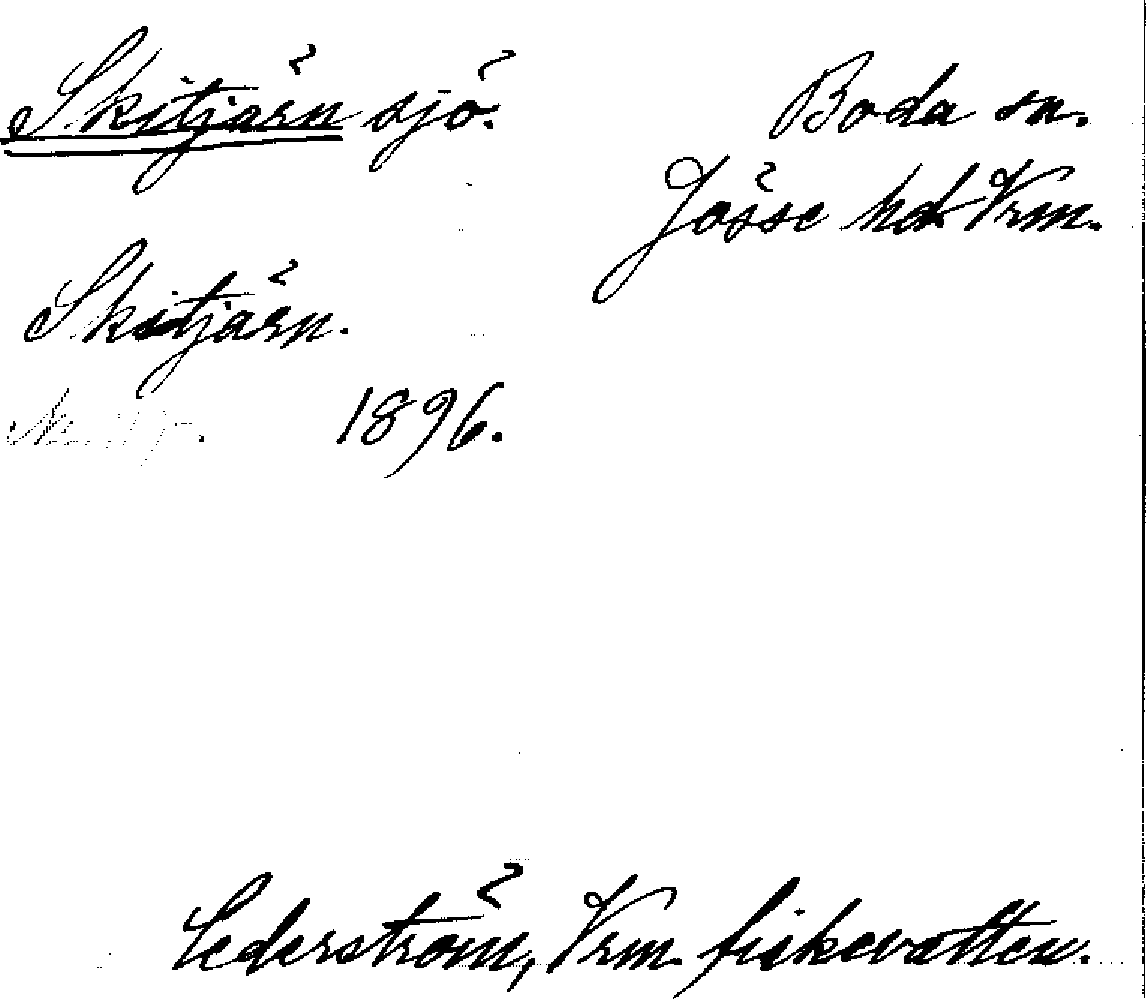 Skitjärn sjö.
Boda sn.
Jösse hd Vrm.
Skitjärn.
1896.
Cederström, Vrm. fiskevatten.